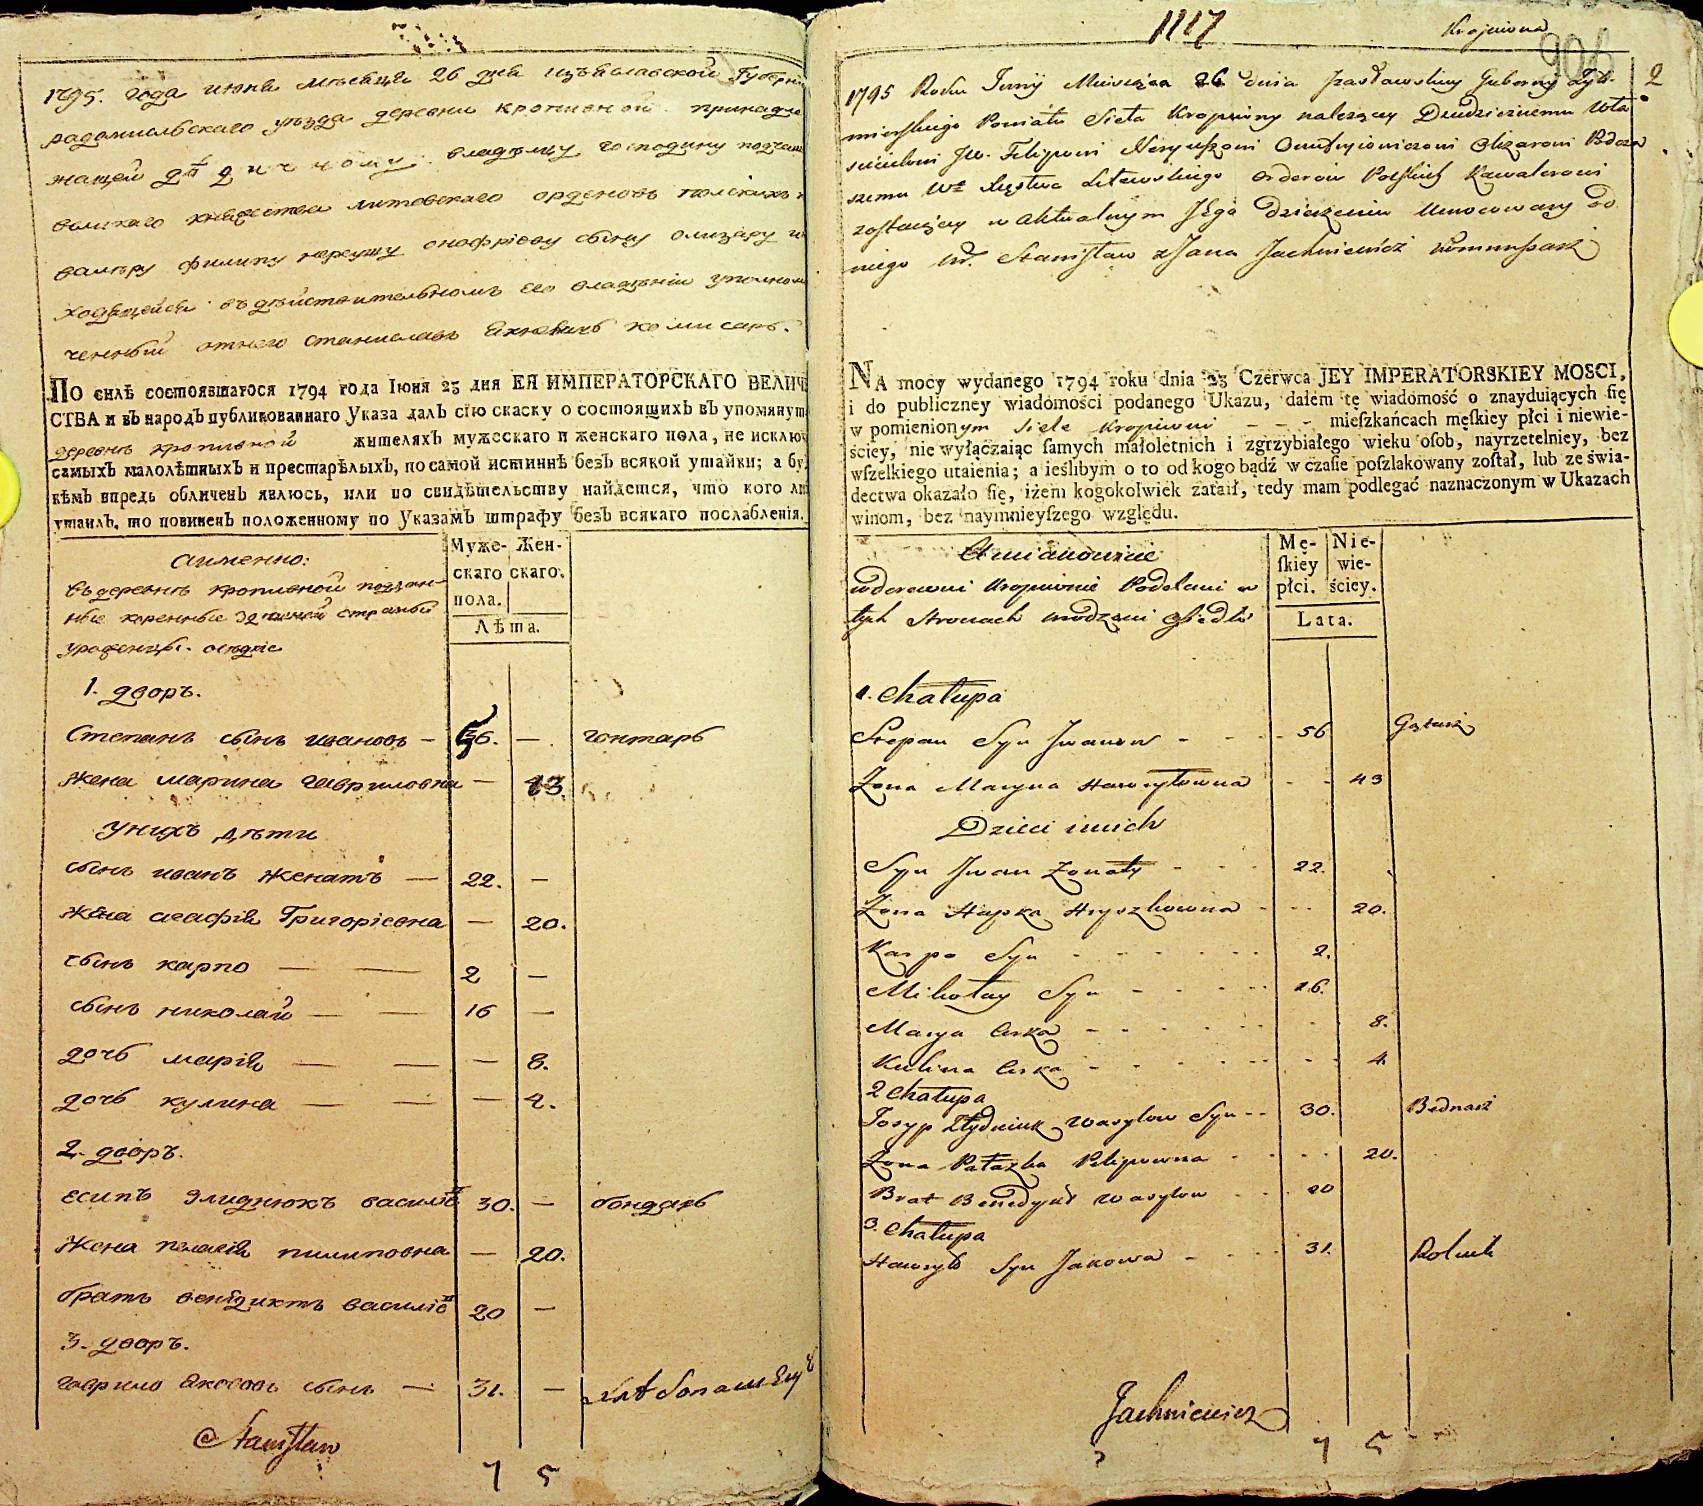 1795. года июня месяца 26 дня изъяславской Губерн
радомысльского уезда деревни кропивной принадле
жащей дедичному владельцу господину подчаш
великаго княжества литовскаго орденовъ польскихъ
валеру филипу нереушу онофріеву сыну олизару
ходящейся въ действительномъ его владеніи уполномо
ченный отнего станиславъ яхневичь комисаръ.
ПО силѣ состоявшагося 1794 года Іюня 23 дня ЕЯ ИМПЕРАТОРСКАГО ВЕЛИЧЕ
СТВА и въ народъ публикованнаго Указа далъ сію скаску о состоящихъ въ упомянут
деревнѣ кропивной жителяхъ мужескаго и женскаго пола, не исключ
самыхъ малолѣтныхъ и престарѣлыхъ, по самой истиннѣ безъ всякой утайки; а бу
кѣмъ впредь обличенъ явлюсь, или по свидѣтельству найдется, что кого ли
утаилъ, то повиненъ положенному по Указамъ штрафу безъ всякаго послабленія.
аименно:
въ деревнѣ кропивной поддан-
ные коренные здешней страны
уроженцы
Муже-
скаго
пола.
Жен-
скаго.
Лѣта.
1. дворъ.
Степанъ сынъ ивановъ — 56. — гонтарь
жена марина гавриловна — 43.
унихъ дѣти
сынъ иванъ женатъ — 22. —
жена агафія Григоріевна — 20.
сынъ карпо — — 2 —
сынъ николай — — 16 —
дочь марія — — — 8.
дочь кулина — — — 4.
2. дворъ.
есипъ элиднюкъ василів 30. — бондарь
жена пелагія пилиповна — 20.
братъ венедиктъ василів 20 —
3. дворъ.
гаврило яковъ сынъ — 31. —
Stanisław
7 5
1117
Kropiwna
906
2
1795 Roku Junij Miesiąca 26 dnia Jzasławskiey Gubernij Żyto
mirskiego Powiatu Sieła Kropiwny należący Dziedzicznemu Wła
scicielowi Jw. Filipowi Nereuszowi Onufryiowiczowi Olizarowi Podcza
szemu Wo Xięstwa Litewskiego Orderow Polskich Kawalerowi
zostaiący w aktualnym Jego Dzierzeniu Umocowany od
niego W. Stanisław z Jana Jachniewicz Kommissarz
NA mocy wydanego 1794 roku dnia 23 Czerwca JEY IMPERATORSKIEY MOSCI,
i do publiczney wiadomości podanego Ukazu, dałem tę wiadomość o znayduiących ſię
w pomienionym Siele Kropiwni - - - mieſzkańcach męſkiey płci i niewie-
ściey, nie wyłączaiąc ſamych małoletnich i zgrzybiałego wieku oſob, nayrzetelniey, bez
wſzelkiego utaienia; a ieślibym o to od kogo bądź w czaſie poſzlakowany został, lub ze świa-
dectwa okazało ſię, iżem kogokolwiek zataił, tedy mam podlegać naznaczonym w Ukazach
winom, bez naymnieyſzego względu.
A mianowicie
w derewni Kropiwnie Poddani w
tych stronach urodzeni Osiedli
Mę-
ſkiey
płci.
Nie-
wie-
ściey.
Lata.
1. Chałupa
Stepan Syn Jwanow - - - 56 Gątarz
Żona Maryna Hawryłowna - - 43
Dzieci u nich
Syn Jwan Żonaty - - - 22.
Żona Hapka Hryszkowna - - - 20.
Karpo Syn - - - - - - 2.
Mikołay Syn - - - - - 16.
Marya Curka - - - - - - - 8.
Kulina Curka - - - - - - - 4
2 Chałupa
Josyp Złydniuk Wasylow Syn - - 30. Bednarz
Żona Pałażka Pilipowna - - - - 20.
Brat Benedykt Wasylow - - - 20
3. Chałupa
Hawryło Syn Jakowa - - - - 31. Rolnik
Jachniewicz
7 5